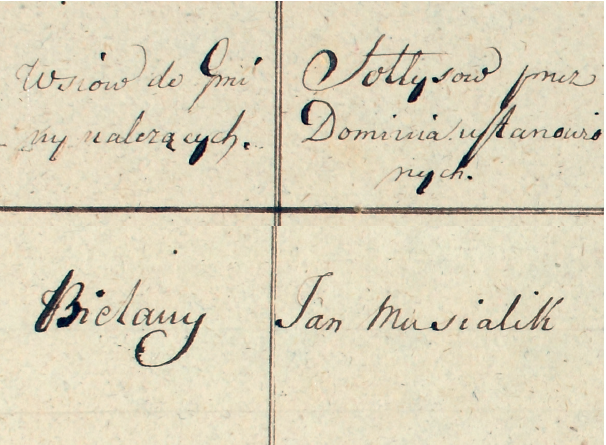 Wsiow do Gmi
ny nalezących.
Sołtysow przez
Dominia ustanowio
nych.
Bielany
Jan Musialik